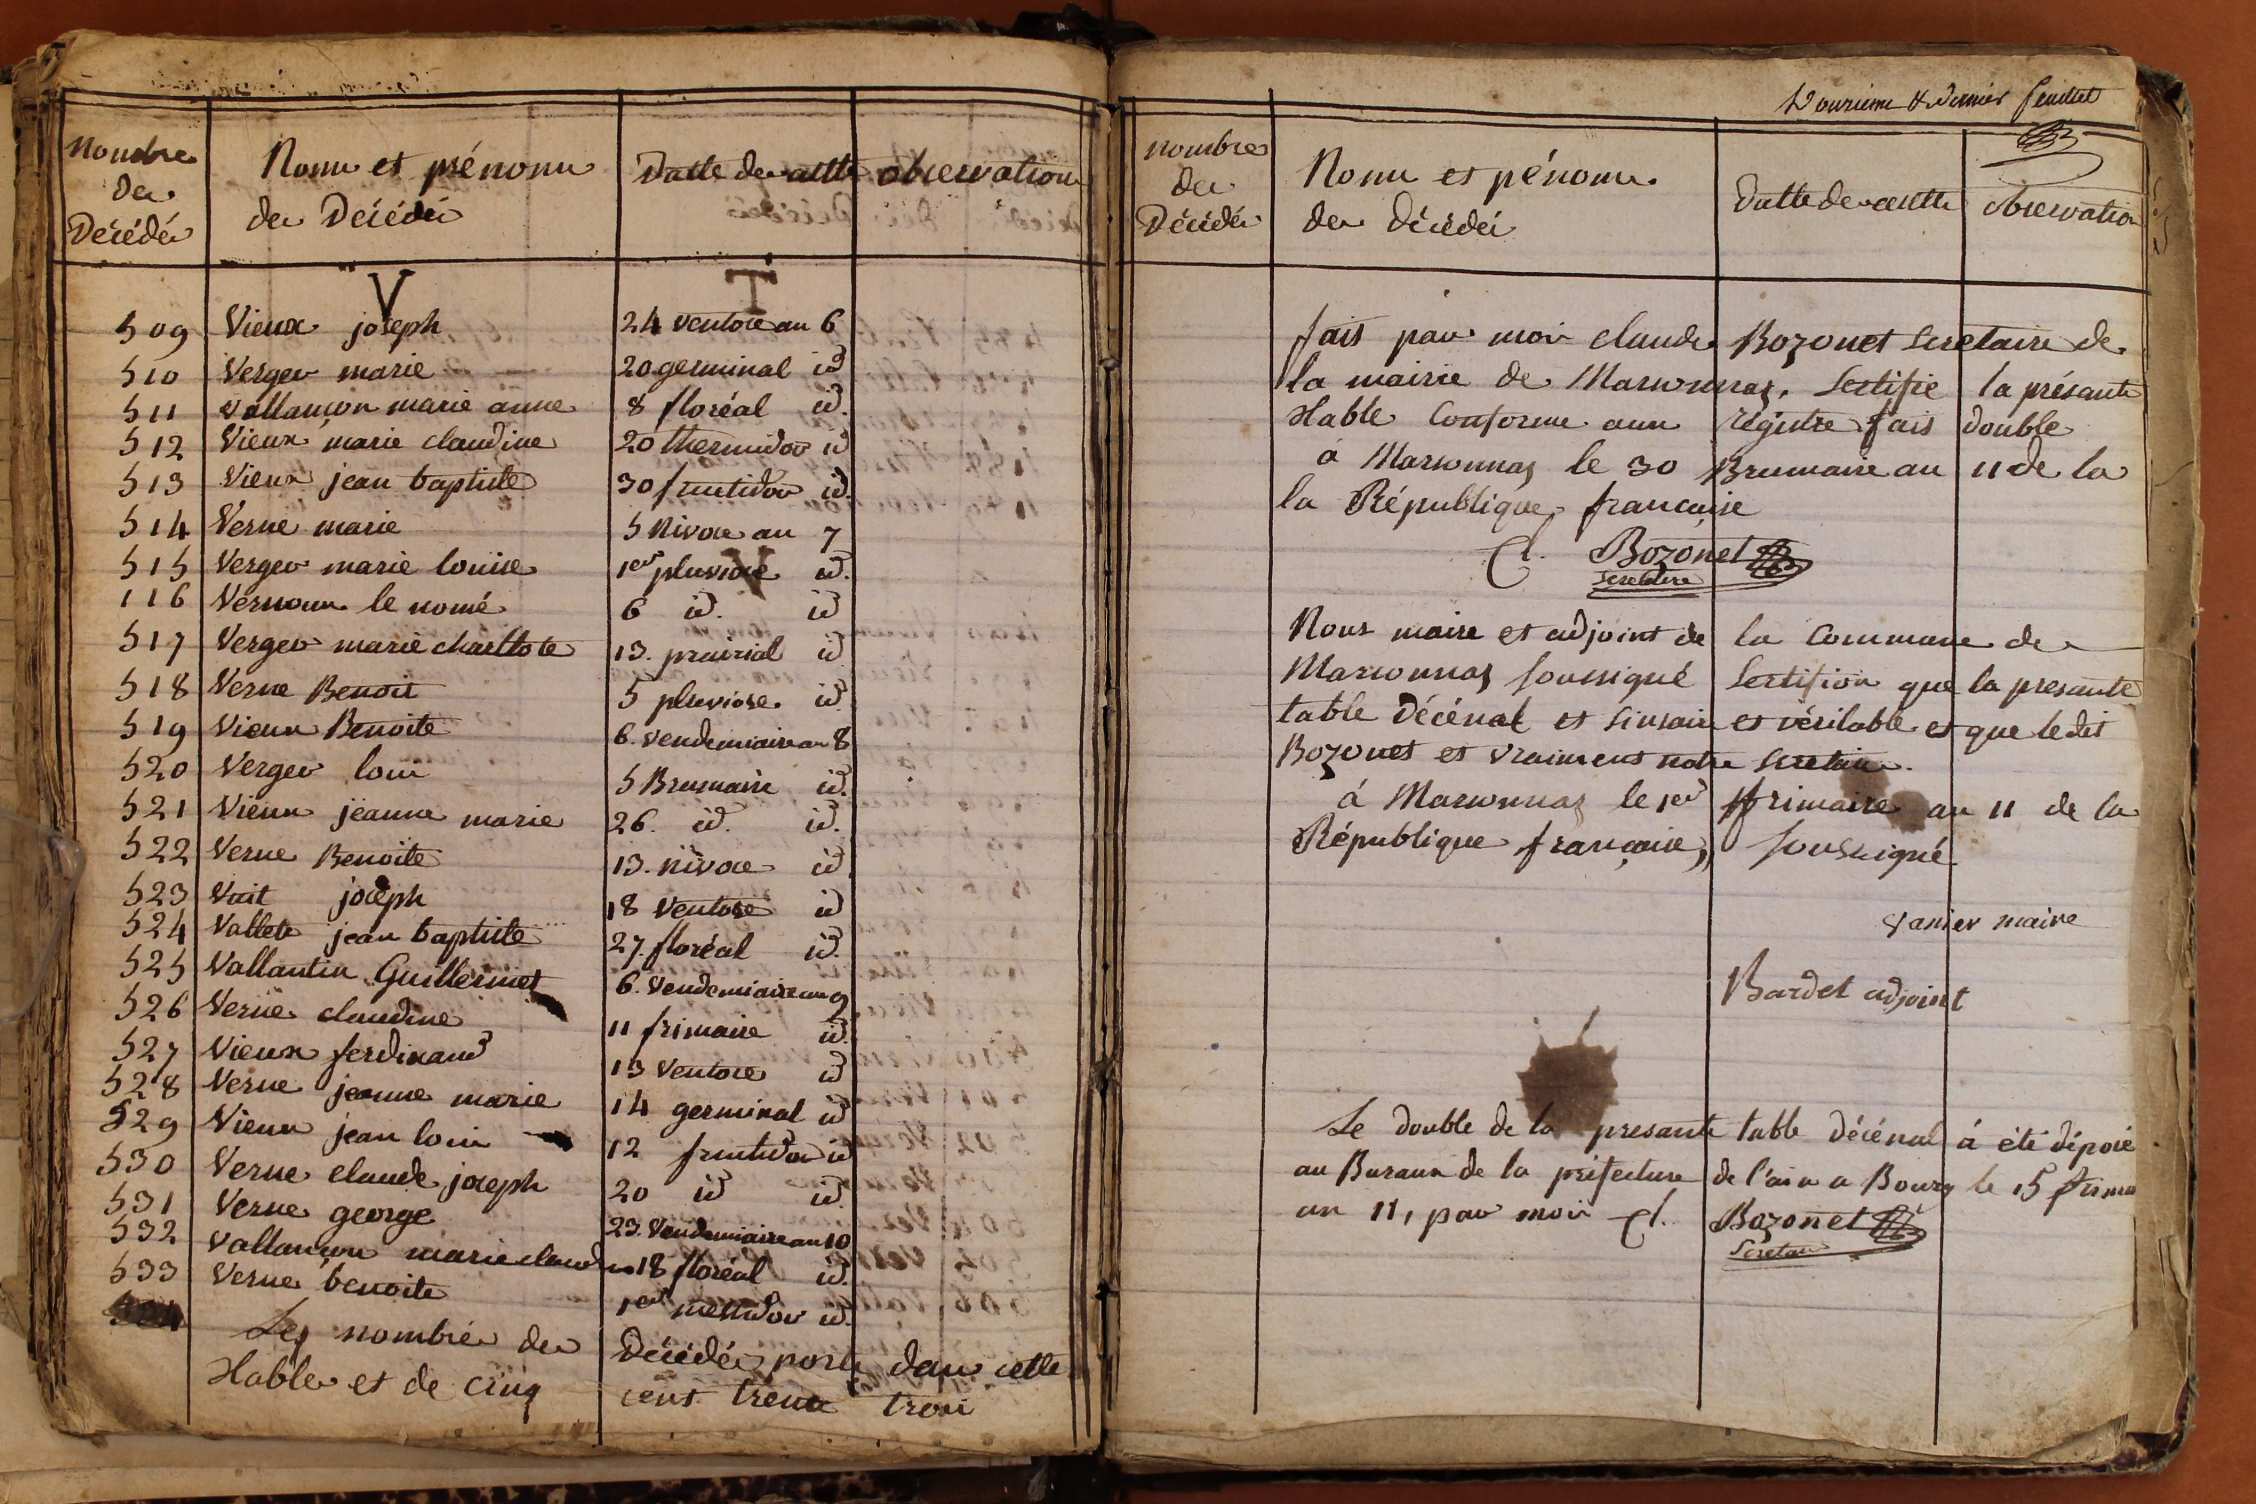 Nombre
des
Décédés
Noms et prénoms
des Décédés
Datte des acttes
observations
V
509 Vieux joseph 24 ventose an 6
510 Verger marie 20 germinal id
511 vallançon marie anne 8 floréal id.
512 Vieux marie claudine 20 thermidor id
513 Vieux jean baptiste 30 fructidor id.
514 Verne marie 5 Nivose an 7
515 Verger marie louise 1er pluviose id.
116 Vernoux le nomé 6 id. id
517 Verger marie charllote 13. prairial id
518 Verne Benoit 5 pluviose. id.
519 Vieux Benoite 6. vendemiaire an 8
520 Verger louis 5 Brumaire id.
521 Vieux jeanne marie 26. id. id.
522 Verne Benoite 13. nivose id
523 Vuit joseph 18 Ventose id
524 Vallete jean baptiste 27. floréal id.
525 Vallantin Guillermet 6. vendemiaire an 9
526 Verne claudine 11 frimaire id.
527 Vieux ferdinand 13 Ventose id
528 Verne jeanne marie 14 germinal id
529 Vieux jean louis 12 fructidor id
530 Verne claude joseph 20 id id.
531 Verne george 23. Vendemiaire an 10
532 Vallançon marie claudine 18 floréal id.
533 Verne benoite 1er messidor id.
Les nombres des Décédés porté dans cette
table et de cinq cent trente trois
Douzieme & dernier feuillet
nombre
des
Décédés
Noms et pénoms
des décédés
Datte des acttes
observation
fait par moi claude Bozonet secretaire de
la mairie de Marsonnas, Certifie la présante
table Conforme aux régistre fais double
à Marsonnas le 30 Brumaire an 11 de la
la République française
Cl. Bozonet
secretaire
Nous maire et adjoint de la Commune de
Marsonnas soussigné Certifion que la presante
table décénal et sinsaire et véritable et que le dit
Bozonet et vraiment notre secretaire.
à Marsonnas le 1er frimaire an 11 de la
République française, soussigné
vanier maire
Bardet adjoint
Le double de la presante table décénal à été déposé
au Buraux de la préfecture de l'ain a Bourg le 15 frimai
an 11, par moi Cl. Bozonet
Secretaire